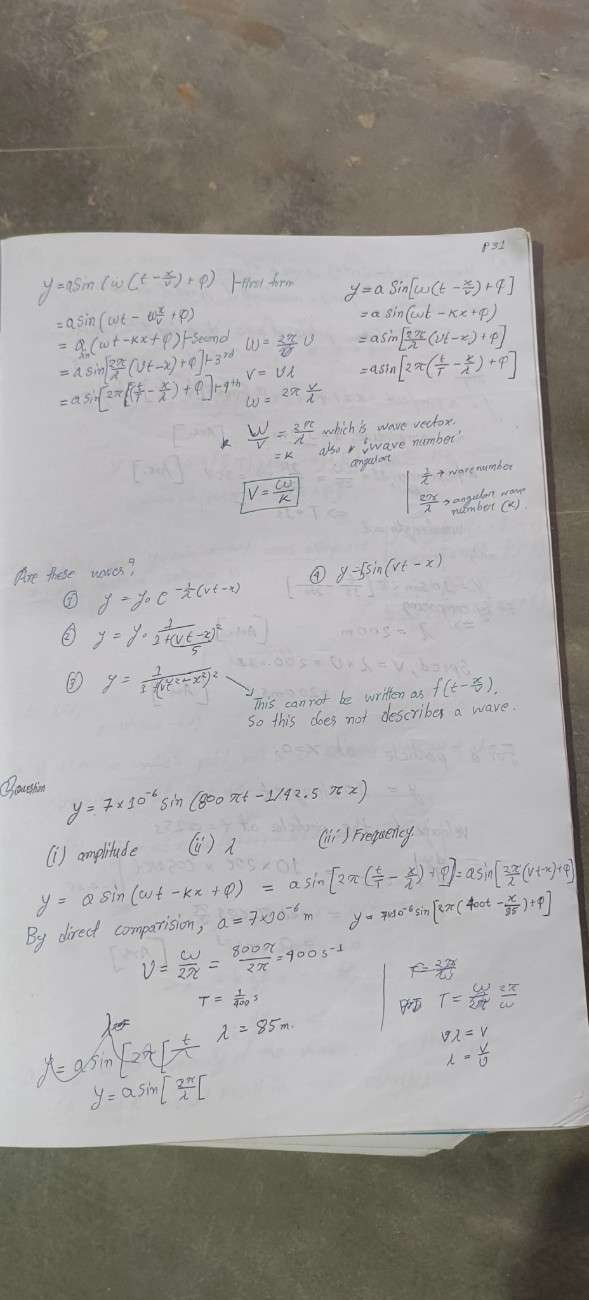 P31
y = a Sin (ω (t - x/v) + φ) } First form
= a sin (ωt - ωx/v + φ)
= a sin (ωt - kx + φ) } Second
= a sin [2π/λ (vt - x) + φ] } 3rd
= a sin [2π (t/T - x/λ) + φ] } 4th
v = υλ
ω = 2π v/λ
y = a Sin [ω(t - x/v) + φ]
= a sin (ωt - kx + φ)
= a sin [2π/λ (vt - x) + φ]
= a sin [2π (t/T - x/λ) + φ]
ω/v = 2π/λ which is wave vector.
= k also angular 'wave number'
V = ω/k
1/λ → wave number
2π/λ → angular wave number (k).
Are these waves?
① y = y₀ e^(-1/λ (vt - x))
④ sin (vt - x)
②
③
This cannot be written as f(t - x/v).
So this does not describes a wave.
Question
y = 7×10⁻⁶ sin (800 πt - 1/42.5 π x)
(i) amplitude (ii) λ (iii) Frequency
y = a sin (ωt - kx + φ) = a sin [2π (t/T - x/λ) + φ] = a sin [2π/λ (vt - x) + φ]
By direct comparision, a = 7×10⁻⁶ m y = 7×10⁻⁶ sin [2π (400t - x/85) + φ]
υ = ω/2π = 800π/2π = 400 s⁻¹
T = 1/400 s
λ = 85 m.
T = 2π/ω
υλ = v
λ = v/υ
y = a sin [2π [t/
y = a sin [2π/λ [